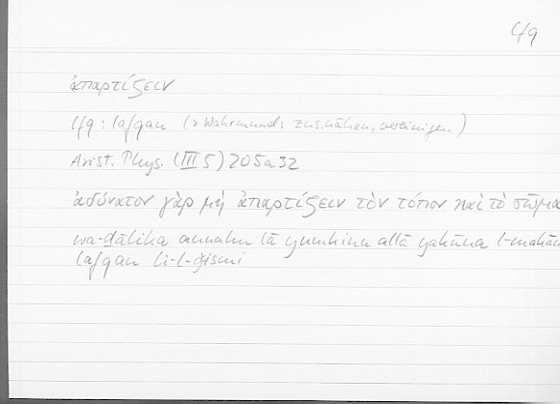 lfq
ἀπαρτίζειν
lfq: lafqan (> Wahrmund: zus.nähen, vereinigen)
Arist. Phys. (III 5) 205a32
ἀδύνατον γὰρ μὴ ἀπαρτίζειν τὸν τόπον καὶ τὸ σῶμα
wa-ḏālika annahu lā yumkinu allā yakūna l-makān
lafqan li-l-ǧismi